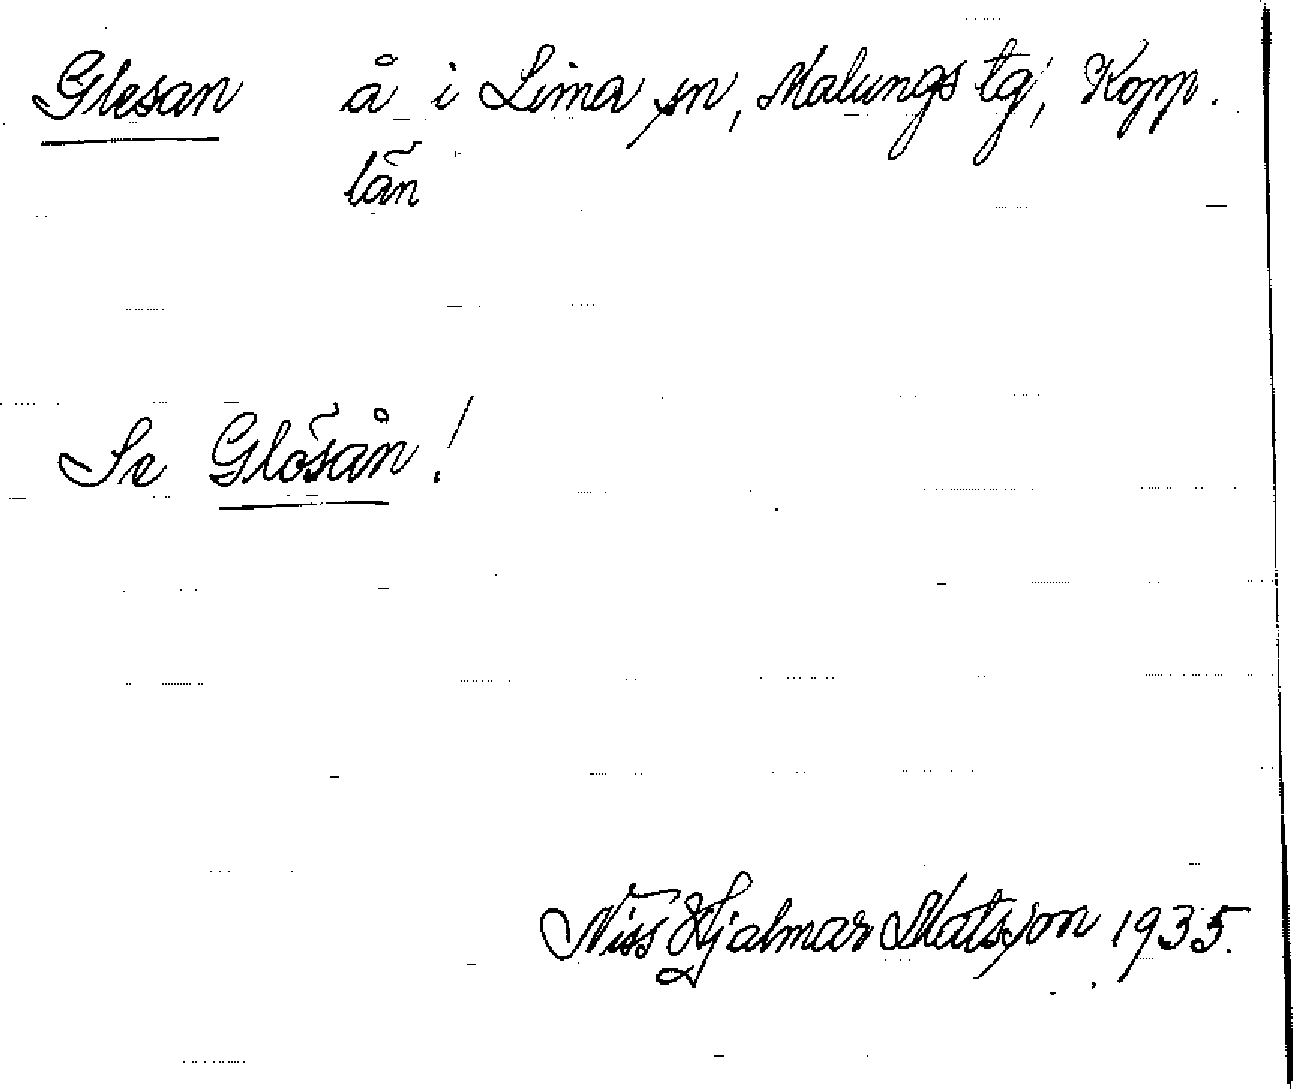 Glesan å i Lima sn, Malungs tg, Kopp.
län
Se Glösån!
Niss Hjalmar Matsson 1935.